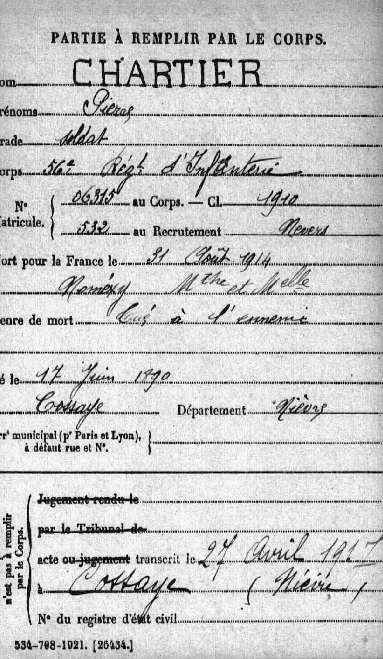 PARTIE À REMPLIR PAR LE CORPS.
om CHARTIER
rénoms Pierre
rade soldat
orps 56e Régt d'Infanterie
N° 06315 au Corps. — Cl. 1910
atricule. 532 au Recrutement Nevers
ort pour la France le 31 Août 1914
Mthe et Melle
enre de mort Tué à l'ennemi
é le 17 Juin 1890
Cossaye Département Nièvre
rrt municipal (pr Paris et Lyon),
à défaut rue et N°.
Jugement rendu le
par le Tribunal de
acte ou jugement transcrit le 27 Avril 1917
à Cossaye (Nièvre)
N° du registre d'état civil
n'est pas à remplir
par le Corps.
534-708-1921. [26434.]